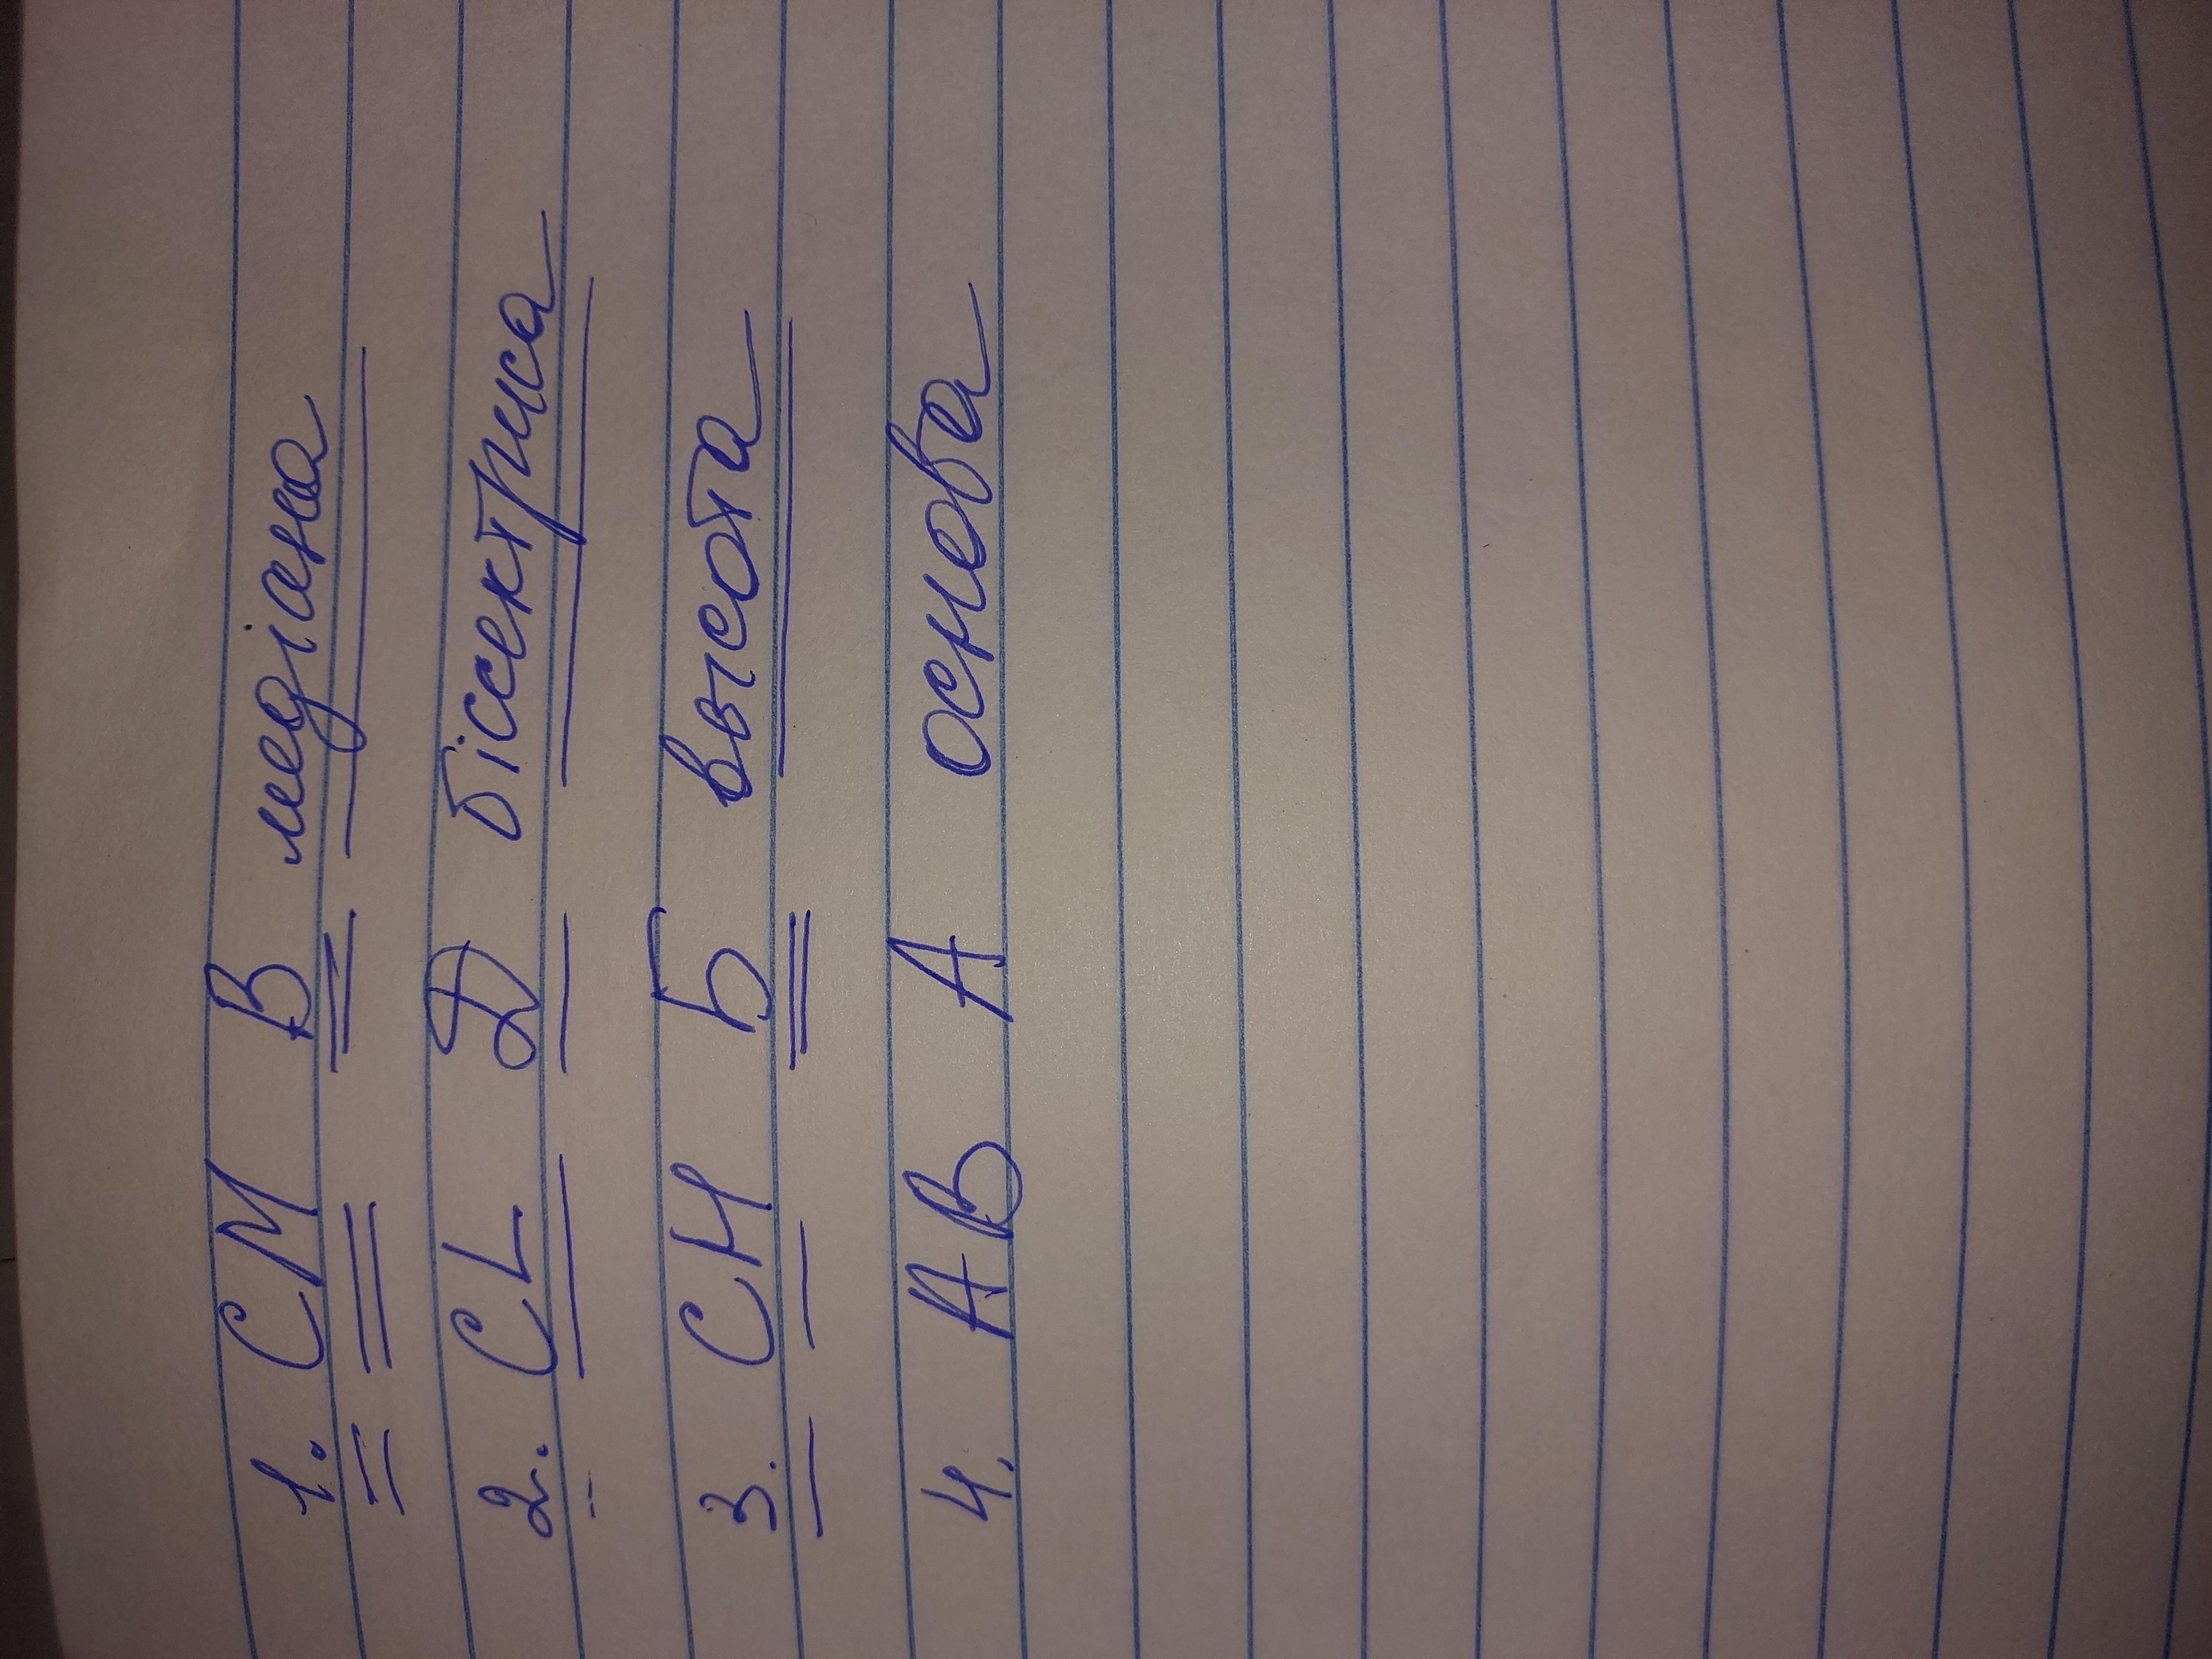 1. CM В медіана
2. CL Д бісектриса
3. CH Б высота
4. AB А основа